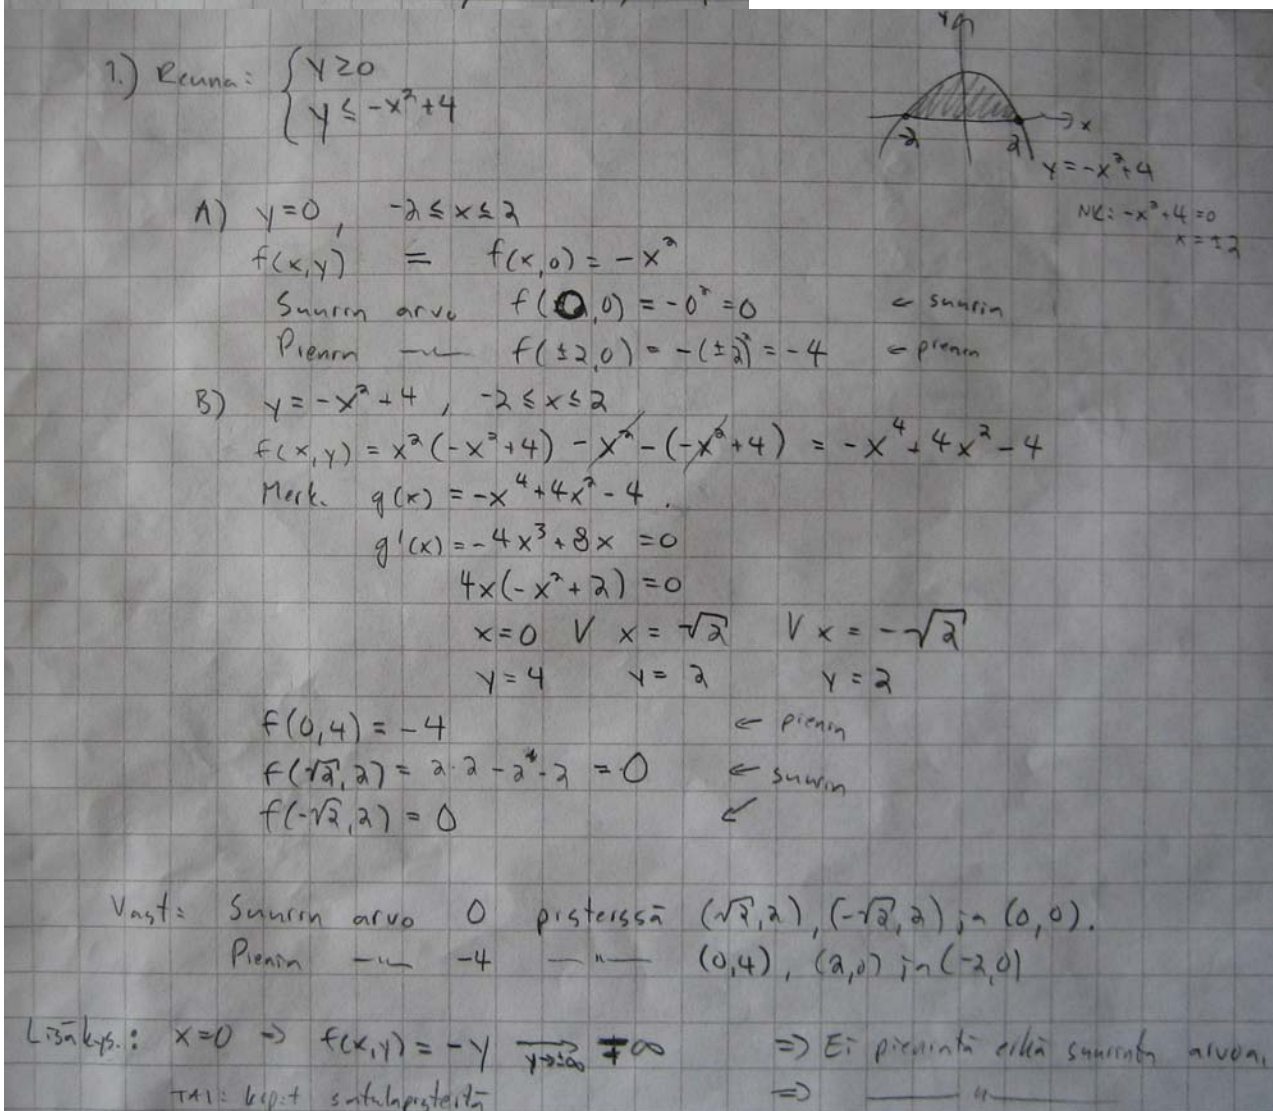 1.) Reuna: { y ≥ 0
y ≤ -x² + 4
y
x
-2
2
y = -x² + 4
NK: -x² + 4 = 0
x = ±2
A) y = 0, -2 ≤ x ≤ 2
f(x,y) = f(x,0) = -x²
Suurin arvo f(0,0) = -0² = 0 ← suurin
Pienin —"— f(±2,0) = -(±2)² = -4 ← pienin
B) y = -x² + 4, -2 ≤ x ≤ 2
f(x,y) = x²(-x² + 4) - x² - (-x² + 4) = -x⁴ + 4x² - 4
Merk. g(x) = -x⁴ + 4x² - 4.
g'(x) = -4x³ + 8x = 0
4x(-x² + 2) = 0
x = 0 ∨ x = √2 ∨ x = -√2
y = 4 y = 2 y = 2
f(0,4) = -4 ← pienin
f(√2,2) = 2·2 - 2 - 2 = 0 ← suurin
f(-√2,2) = 0 ↙
Vast: Suurin arvo 0 pisteissä (√2,2), (-√2,2) ja (0,0).
Pienin —"— -4 —"— (0,4), (2,0) ja (-2,0)
Lisäkys.: x=0 → f(x,y) = -y →(y→±∞) ∓∞ ⇒ Ei pienintä eikä suurinta arvoa.
TAI: kr.p:t satulapisteitä ⇒ —"—